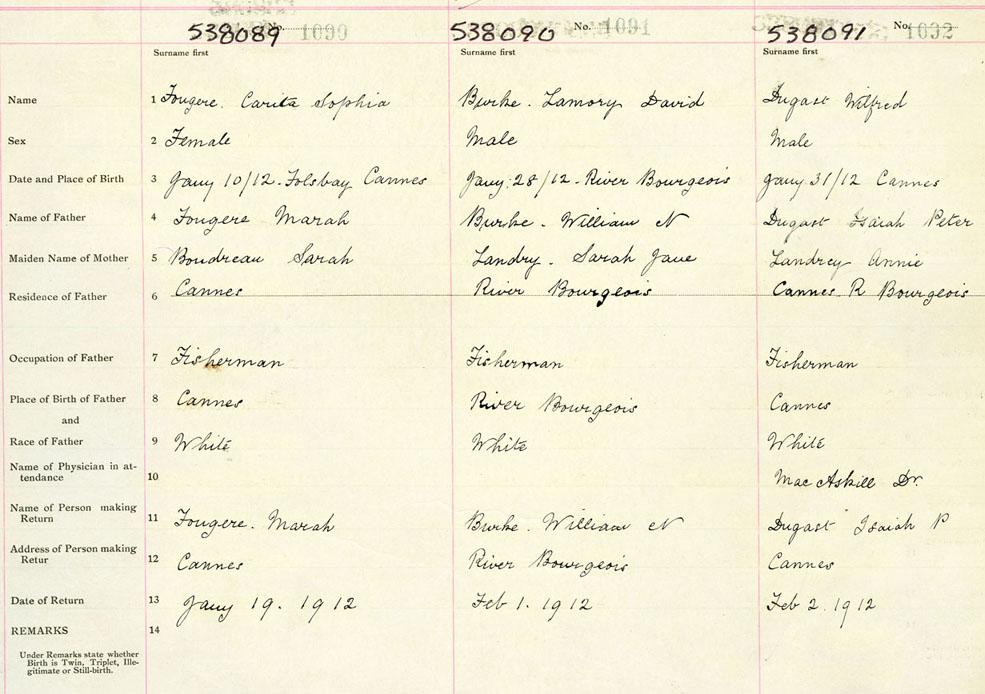 538089 No. 1090 538090 No. 1091 538091 No. 1092
Surname first Surname first Surname first
Name 1 Fougere. Carita Sophia Burke. Lamory David Dugast Wilfred
Sex 2 Female Male Male
Date and Place of Birth 3 Jany 10/12. Cannes Jany. 28/12. River Bourgeois Jany 31/12 Cannes
Name of Father 4 Fougere Marah Burke. William N Dugast Isaiah Peter
Maiden Name of Mother 5 Boudreau Sarah Landry. Sarah Jane Landrey Annie
Residence of Father 6 Cannes River Bourgeois Cannes R Bourgeois
Occupation of Father 7 Fisherman Fisherman Fisherman
Place of Birth of Father 8 Cannes River Bourgeois Cannes
and
Race of Father 9 White White White
Name of Physician in at-
tendance 10 MacAskill Dr.
Name of Person making
Return 11 Fougere. Marah Burke. William N Dugast Isaiah P
Address of Person making
Retur 12 Cannes River Bourgeois Cannes
Date of Return 13 Jany 19. 1912 Feb 1. 1912 Feb 2. 1912
REMARKS 14
Under Remarks state whether
Birth is Twin, Triplet, Ille-
gitimate or Still-birth.